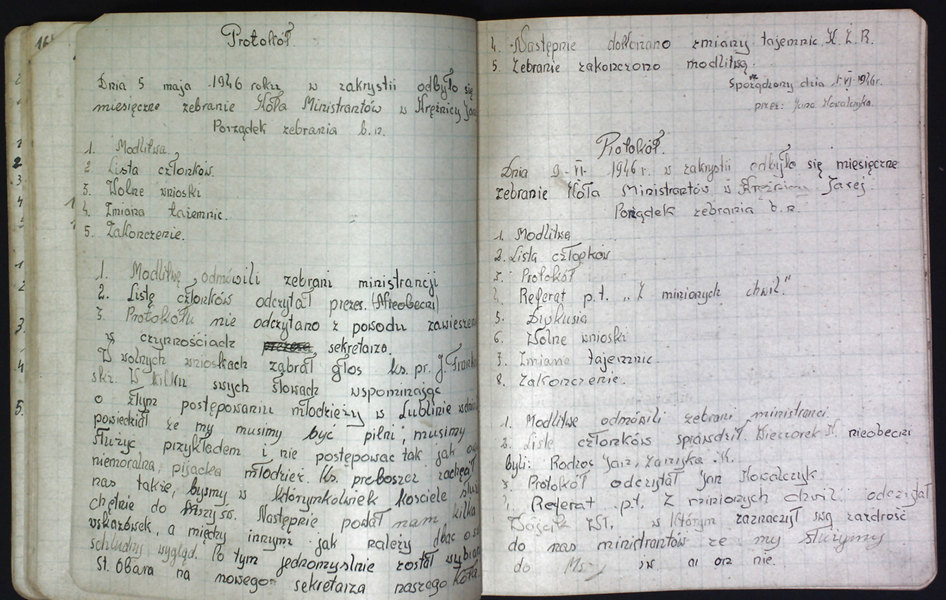 Protokół.
Dnia 5 maja 1946 roku w zakrystii odbyło się
miesięczne zebranie Koła Ministrantów w Krężnicy Jarej
Porządek zebrania b. n.
1. Modlitwa
2 Lista członków.
3. Wolne wnioski
4. Zmiana tajemnic.
5. Zakończenie.
1. Modlitwę odmówili zebrani ministrancji
2. Listę członków odczytał prezes.
3. Protokołu nie odczytano z powodu zawieszenia
w czynnościach sekretarza.
W wolnych wnioskach zabrał głos ks. pr. J.
ski. W kilku swych słowach wspominając
o złym postępowaniu młodzieży w Lublinie
powiedział że my musimy być pilni, musimy
służyć przykładem i nie postępować tak jak
niemoralna, pijacka młodzież. Ks. proboszcz zachęcał
nas także, byśmy w którymkolwiek kościele
chętnie do Mszy św. Następnie podał nam kilka
wskazówek, a między innymi jak należy dbać o
schludny wygląd. Po tym jednomyślnie został wybrany
St. Obara na nowego sekretarza naszego Koła.
4. Następnie dokonano zmiany tajemnic K. Ż. R.
5. Zebranie zakończono modlitwą.
Sporządzony dnia 1 VI 1946r.
przez: Jana Kowalczyka.
Protokół
Dnia 9-VI- 1946 r. w zakrystii odbyło się miesięczne
zebranie Koła Ministrantów w Krężnicy Jarej.
Porządek zebrania b. n.
1. Modlitwa
2. Lista członków
3. Protokół
4. Referat p.t. „Z minionych chwil."
5. Dyskusja
6. Wolne wnioski
7. Zmiana tajemnic.
8. Zakończenie.
1. Modlitwę odmówili zebrani ministranci
2. Listę członków sprawdził Wieczorek K. nieobecni
byli: Jan, K.
3 Protokół odczytał Jan Kowalczyk
4. Referat p.t. Z minionych chwil odczytał
St. w którym zaznaczył swą zazdrość
do nas ministrantów że my służymy
do nie.